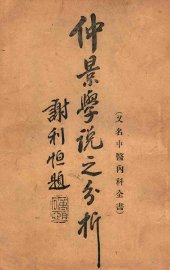 (又名中醫內科全書)
仲景學說之分析
謝利恒題